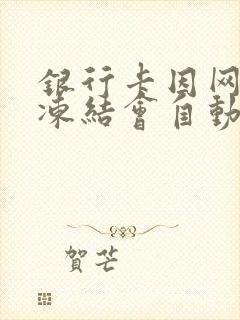 銀行卡因网
凍結會自動
賀芒